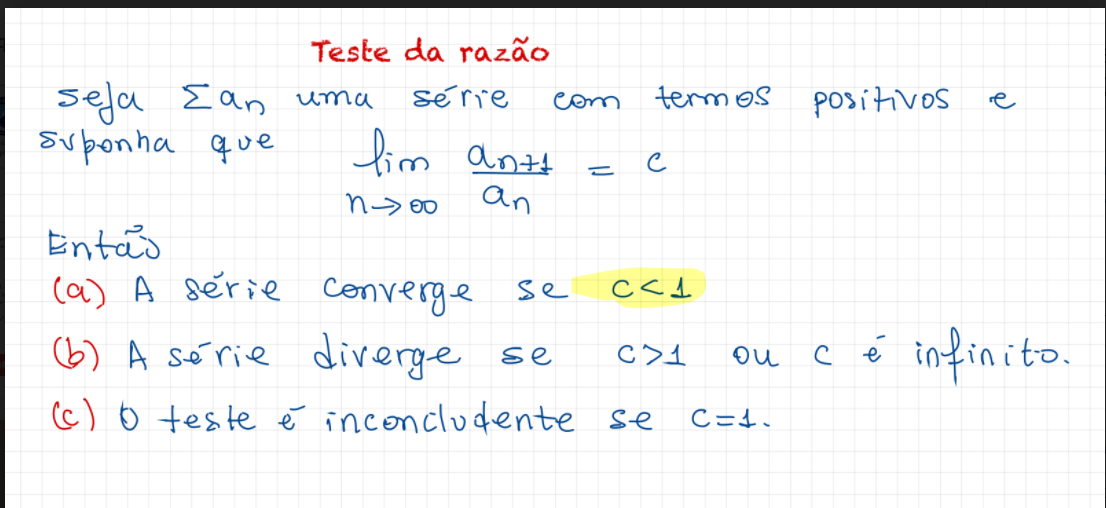 Teste da razão
seja Σan uma série com termos positivos e
suponha que lim n→∞ an+1/an = c
Então
(a) A série converge se c<1
(b) A série diverge se c>1 ou c é infinito.
(c) O teste é inconcludente se c=1.